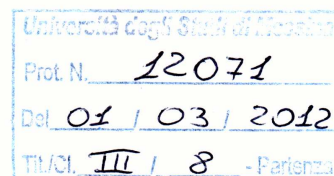 Università degli Studi di Messina
Prot. N. 12071
Del 01 / 03 / 2012
Tit./Cl. III / 8 - Partenza